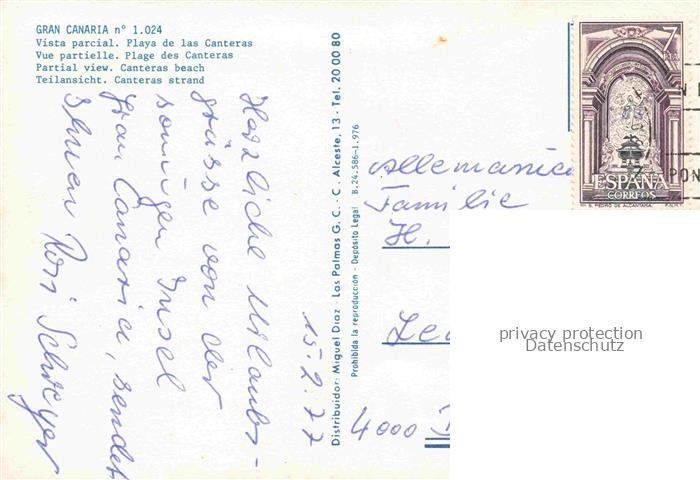 GRAN CANARIA nº 1.024
Vista parcial. Playa de las Canteras
Vue partielle. Plage des Canteras
Partial view. Canteras beach
Teilansicht. Canteras strand
Herzliche Urlaubs-
grüsse von der
sonnigen Insel
Gran Canaria, sendet
Ihnen Rosi
15.2.77
Distribuidor: Miguel Diaz - Las Palmas G. C. - C. Alceste, 13 - Tel. 20 00 80
Prohibida la reproducción - Depósito Legal B. 24.586-1.976
7
PTA
ESPAÑA
CORREOS
S. PEDRO DE ALCANTARA
PON
Allemania
Familie
H.
4000
privacy protection
Datenschutz